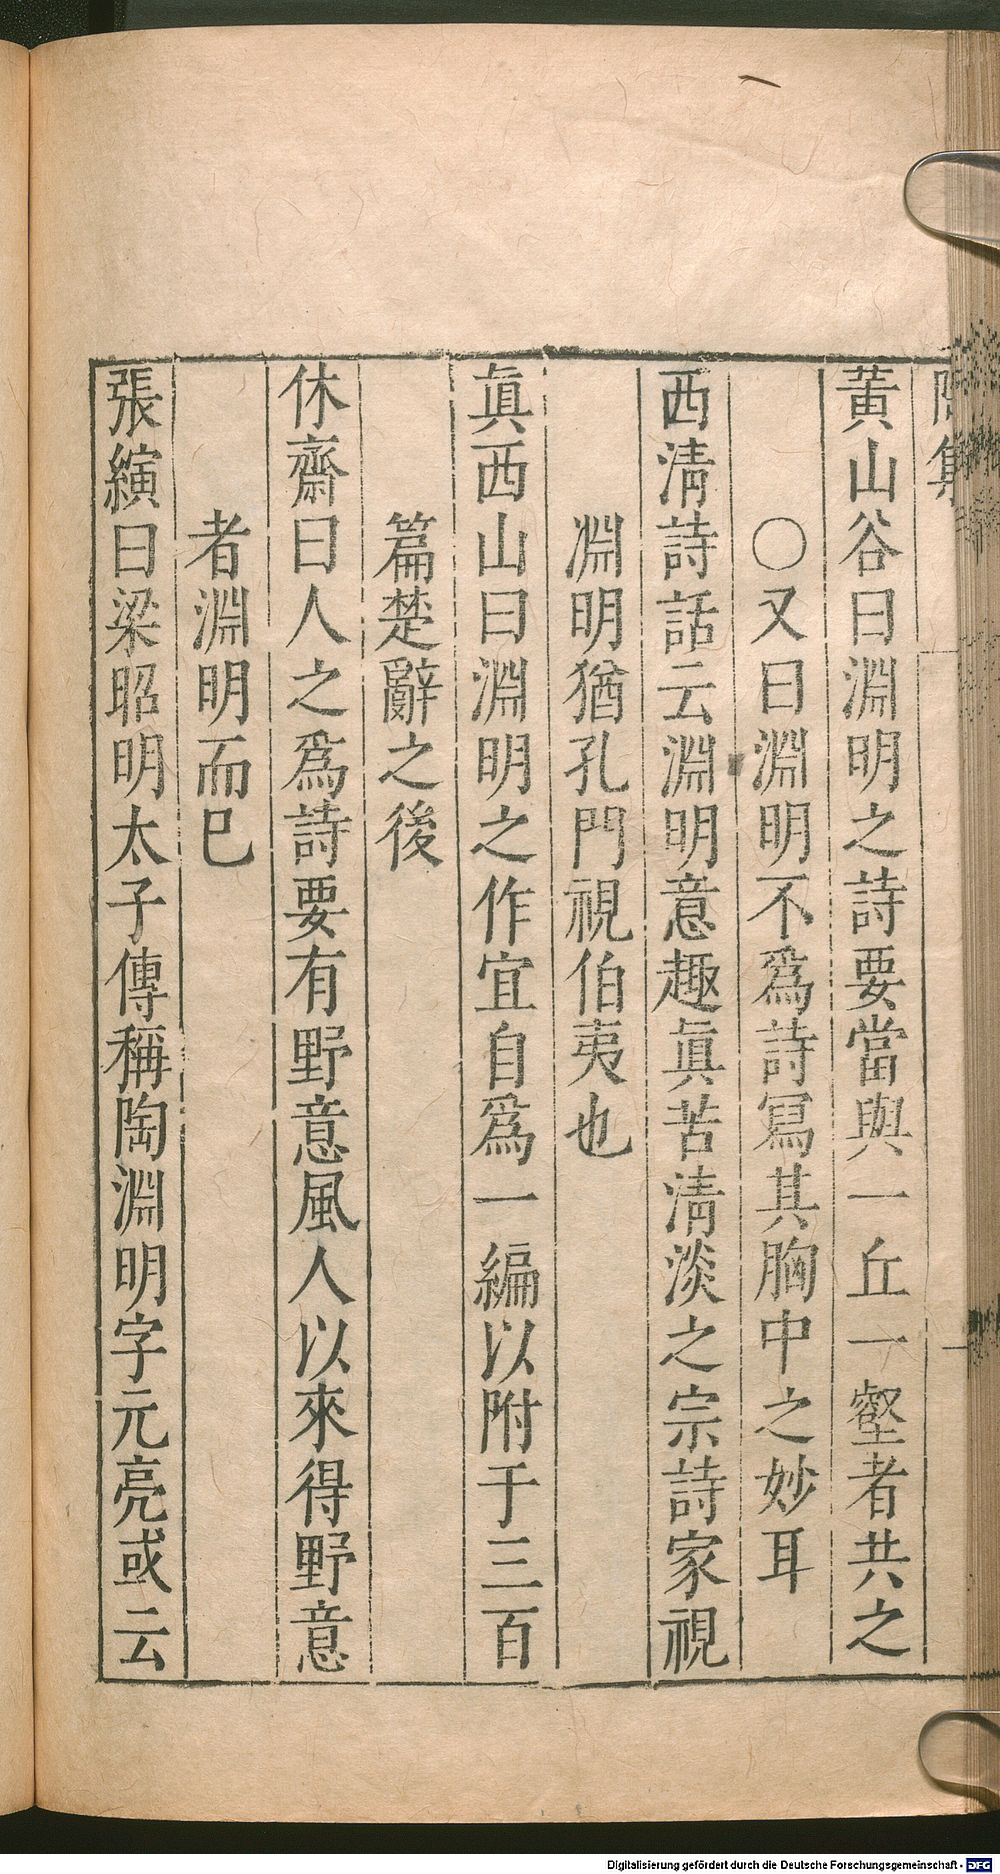 集
黃山谷曰淵明之詩要當與一丘一壑者共之
〇又曰淵明不爲詩寫其胸中之妙耳
西淸詩話云淵明意趣眞苦淸淡之宗詩家視
淵明猶孔門視伯夷也
眞西山曰淵明之作宜自爲一編以附于三百
篇楚辭之後
休齋曰人之爲詩要有野意風人以來得野意
者淵明而巳
張縯曰梁昭明太子傳稱陶淵明字元亮或云
Digitalisierung gefördert durch die Deutsche Forschungsgemeinschaft - DFG